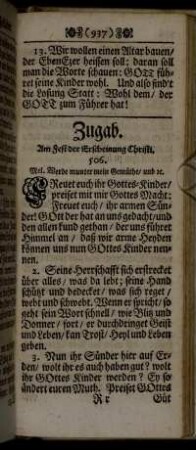 (937)
13. Wir wollen einen Altar bauen/
der EbenEzer heissen soll: daran soll
man die Worte schauen: GOTT füh-
ret seine Kinder wohl. Und also sind't
die Losung Statt: Wohl dem/ der
GOTT zum Führer hat!
Zugab.
Am Fest der Erscheinung Christi.
506.
Mel. Werde munter mein Gemüthe/ und ꝛc.
FReuet euch ihr Gottes-Kinder/
preiset mit mir Gottes Macht:
Freuet euch/ ihr armen Sün-
der! Gott der hat an uns gedacht/ und
den allen kund gethan/ der uns führet
Himmel an/ daß wir arme Heyden
können uns nun Gottes Kinder nen-
nen.
2. Seine Herrschafft sich erstrecket
über alles/ was da lebt; seine Hand
schützt und bedecket/ was sich reget/
webt und schwebt. Wenn er spricht/ so
geht sein Wort schnell/ wie Blitz und
Donner/ fort/ er durchdringet Geist
und Leben/ kan Trost/ Heyl und Leben
geben.
3. Nun ihr Sünder hier auf Er-
den/ wolt ihr es auch haben gut? wolt
ihr GOttes Kinder werden? Ey so
ändert euren Muth. Preiset GOttes
R r
Güt